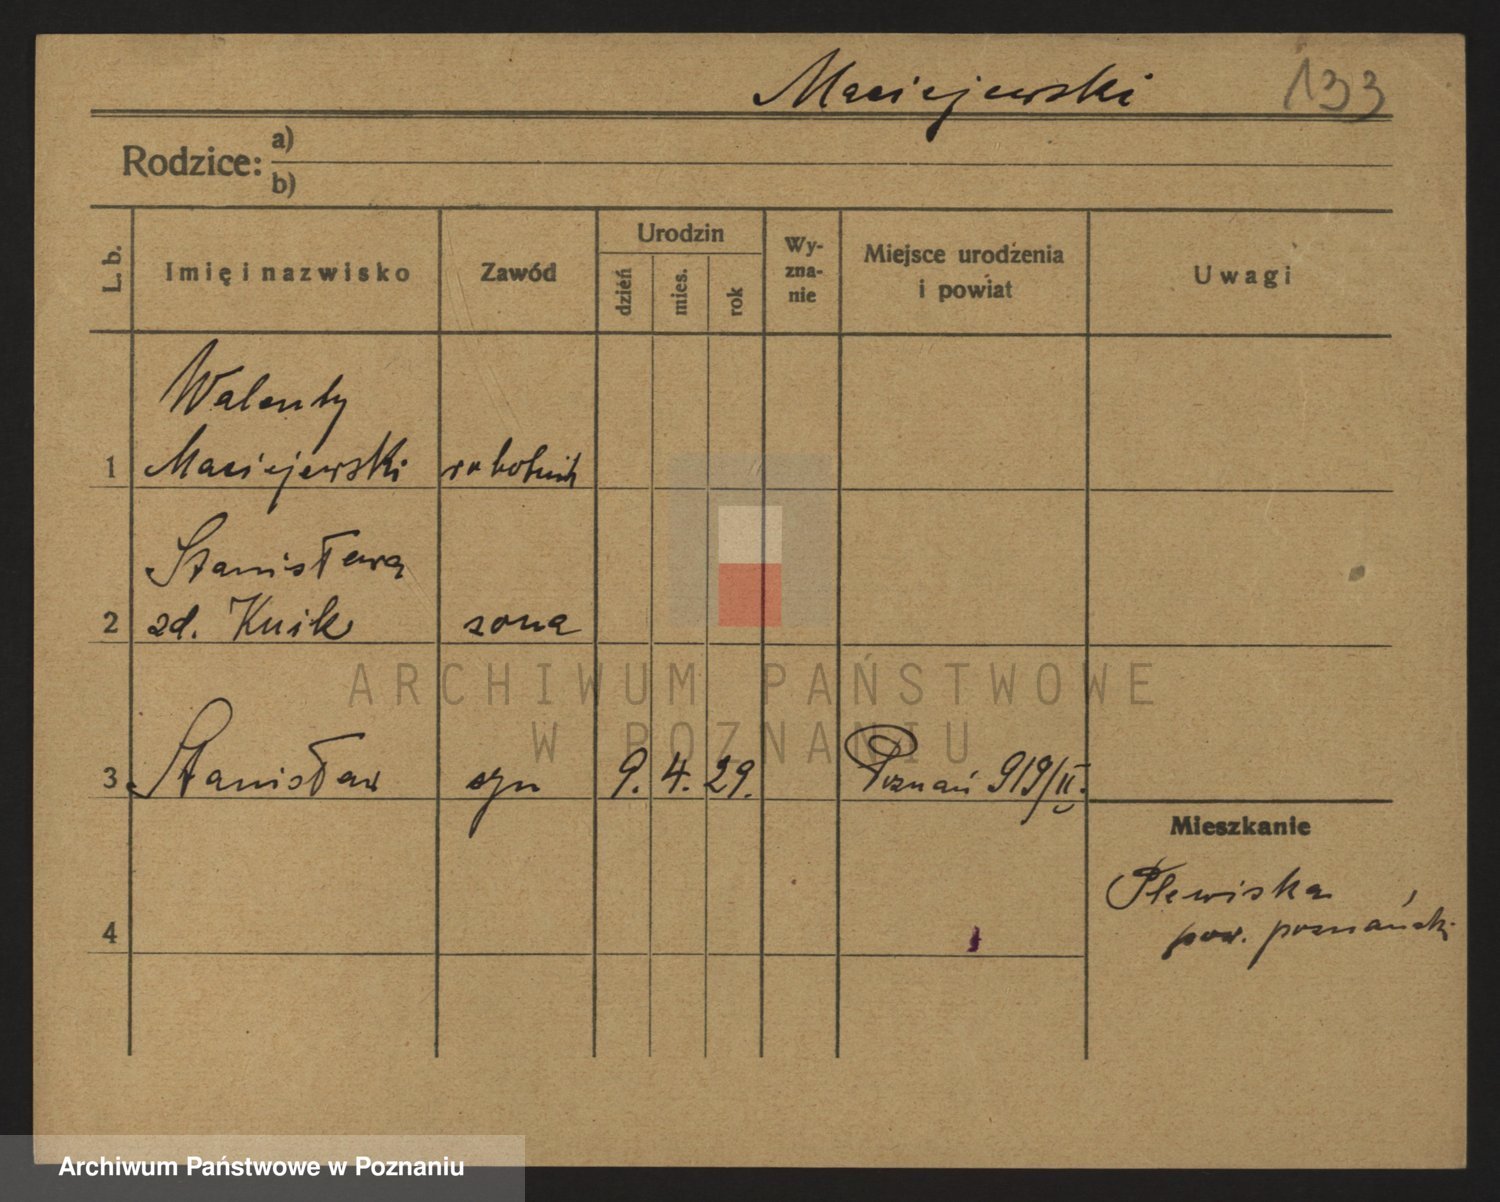 Maciejewski 133
Rodzice: a)
b)
L. b. Imię i nazwisko Zawód Urodzin dzień mies. rok Wy-zna-nie Miejsce urodzenia i powiat Uwagi
Walenty
1 Maciejewski robotnik
Stanisława
2 zd. Kuik zona
3 Stanisław syn 9. 4. 29. Poznań 919/II.
Mieszkanie
Plewiska
pow. poznański
4
ARCHIWUM PAŃSTWOWE
W POZNANIU
Archiwum Państwowe w Poznaniu